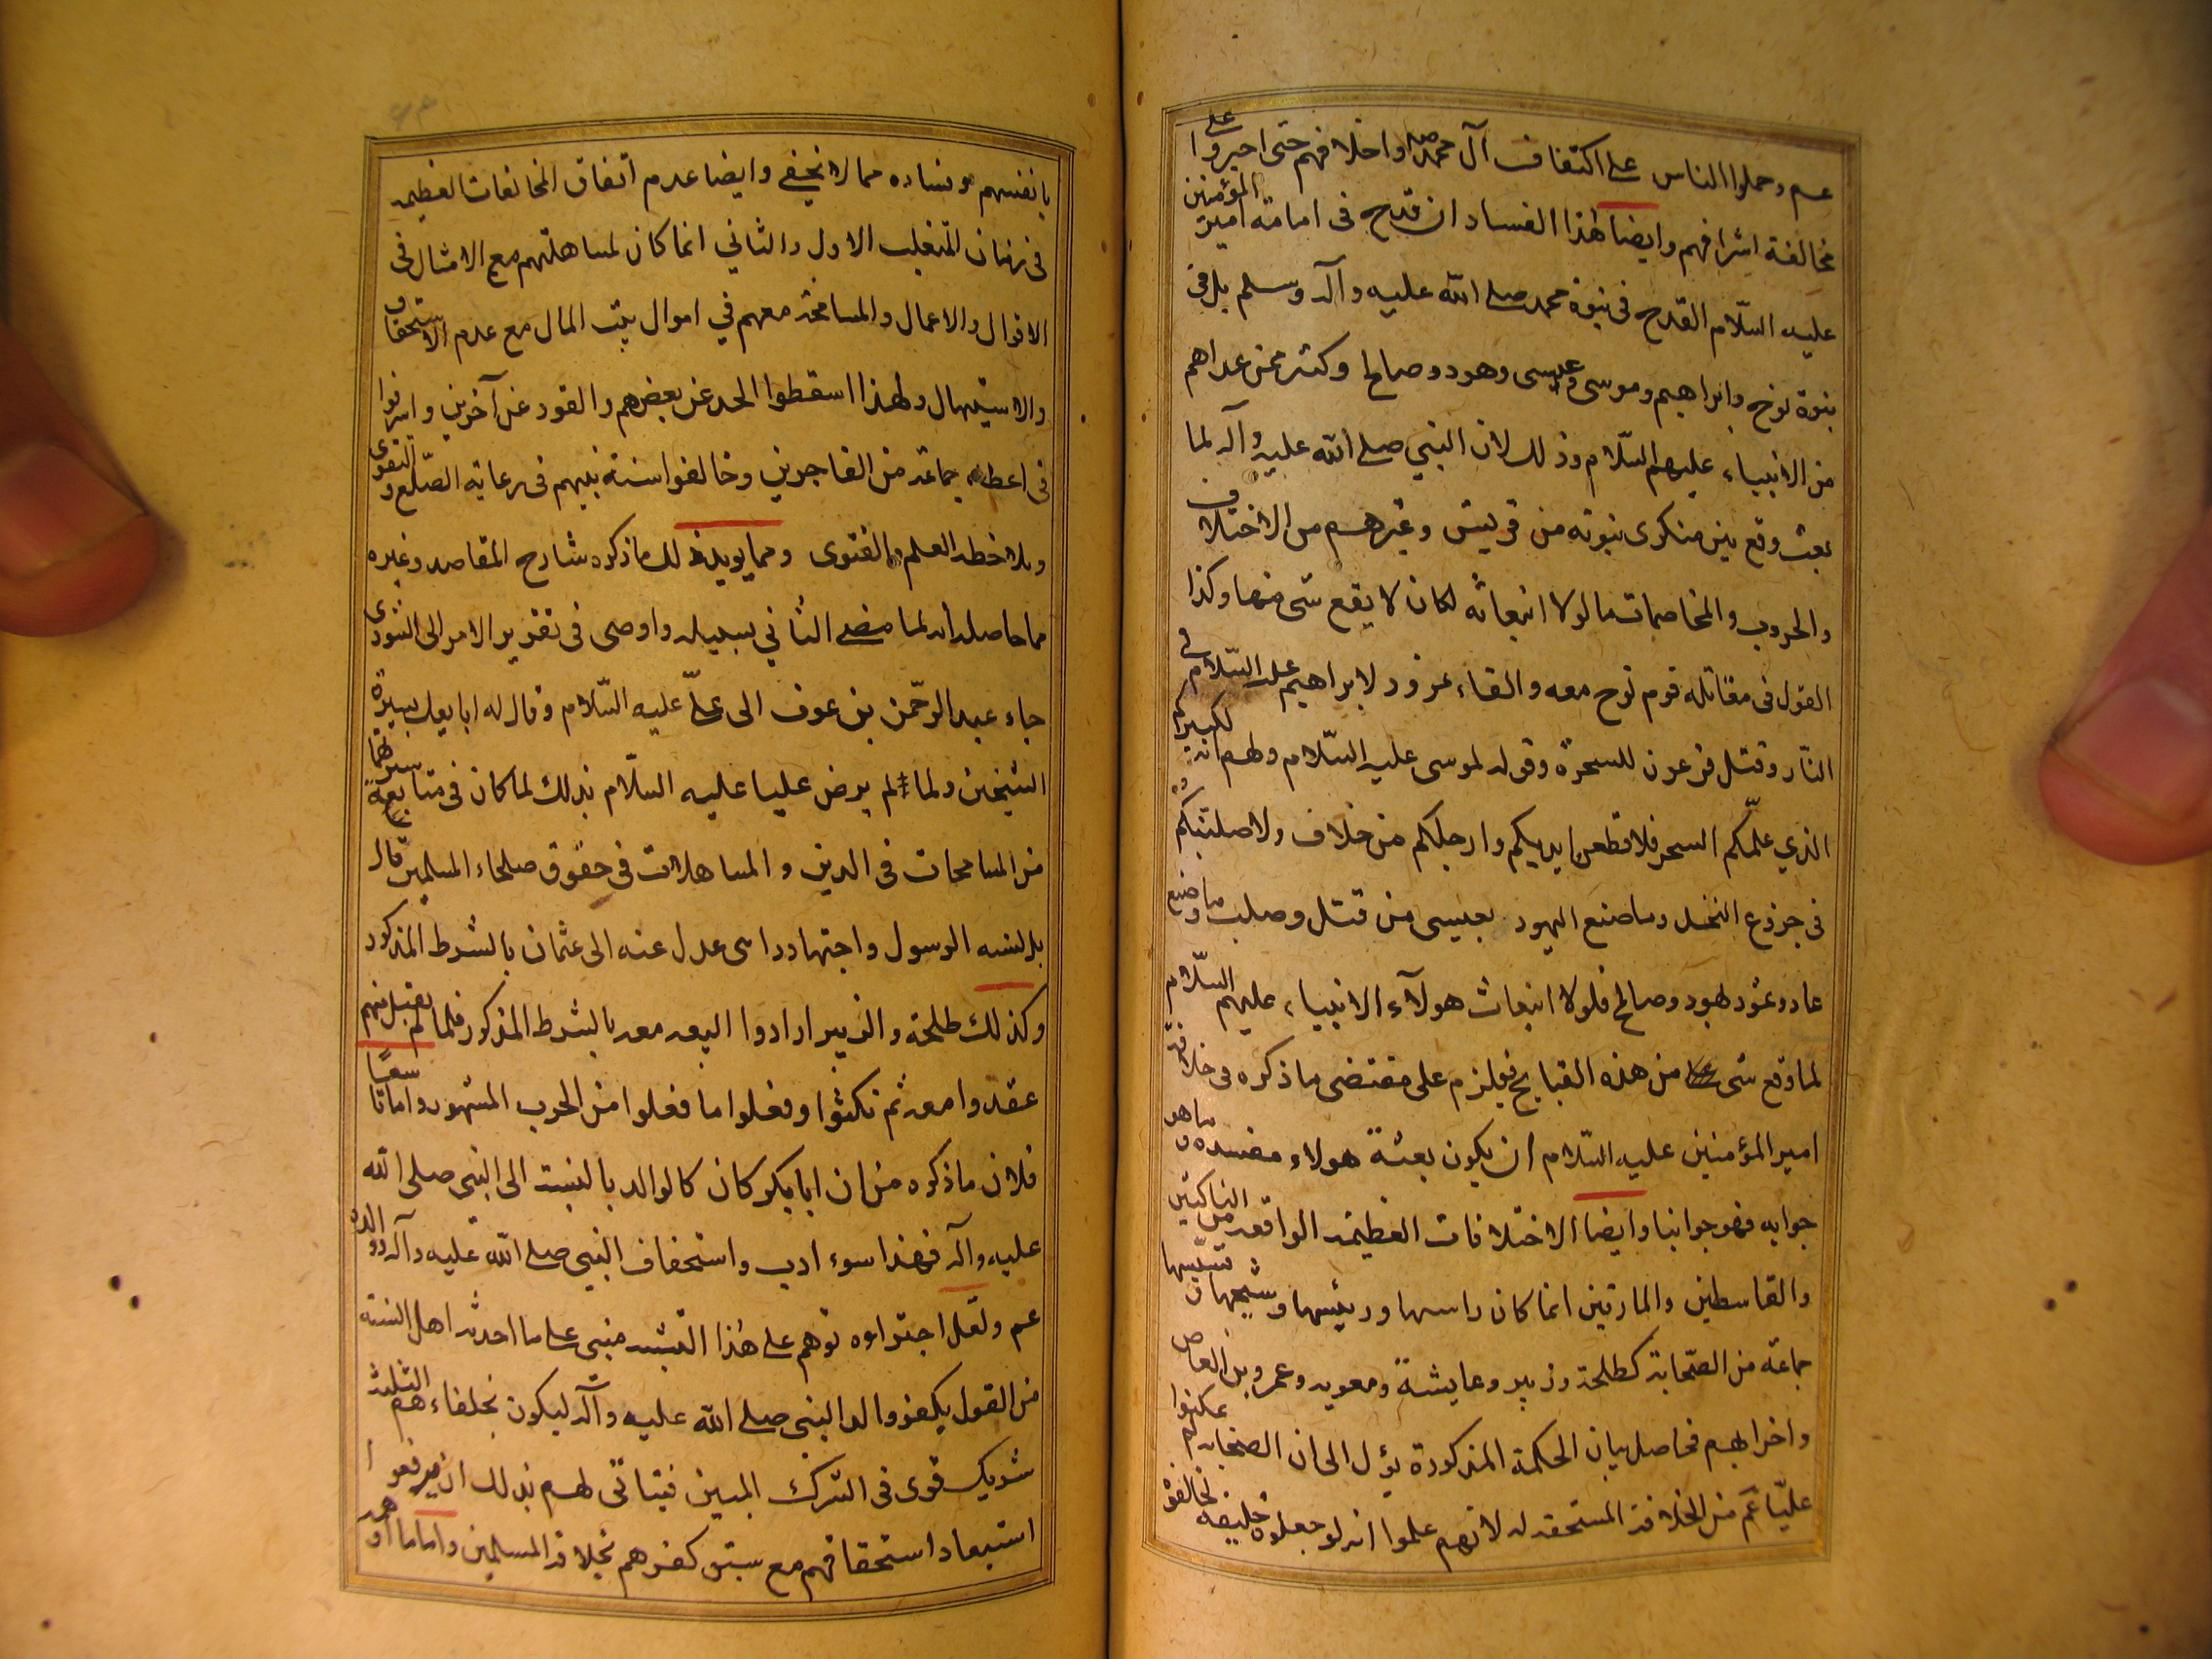 عم وحملوا الناس على اكتفاف آل محمد ص واخلافهم حتى اجبروا على
مخالفة اشرافهم وايضا هذا الفساد ان قدح فى امامة امير المؤمنين
عليه السلام القدح فى نبوة محمد صلى الله عليه وآله وسلم بل فى
نبوة نوح وابراهيم وموسى وعيسى وهود وصالح وكثير ممن عداهم
من الانبياء عليهم السلام وذلك لان النبي صلى الله عليه وآله لما
بعث وقع بين منكرى نبوته من قريش وغيرهم من الاختلاف
والحروب والمخاصمات ما لولا انبعاثه لكان لا يقع شى منها وكذا
القول فى مقاتلة قوم نوح معه والقاء نمرود لابراهيم عليه السلام فى
النار وقتل فرعون للسحرة وقوله لموسى عليه السلام ولهم انه لكبيركم
الذي علمكم السحر فلاقطعن ايديكم وارجلكم من خلاف ولاصلبنكم
فى جزوع النخل وما صنع اليهود بعيسى من قتل وصلب وما صنع
عاد وثمود لهود وصالح فلولا انبعاث هولآء الانبياء عليهم السلام
لما وقع شى من هذه القبايح فيلزم على مقتضى ما ذكره فى خلافة
امير المؤمنين عليه السلام ان يكون بعثة هولاء مفسده وما هو
جوابه فهو جوابنا وايضا الاختلافات العظيمه الواقعه من الناكثين
والقاسطين والمارقين انما كان راسها ورئيسها و
جماعة من الصحابة كطلحة وزبير وعايشة ومعويه وعمرو بن العاص
واضرابهم فحاصل بيان الحكمة المذكورة يؤل الى ان الصحابه لم يمكنوا
عليا عم من الخلافة المستحقه له لانهم علموا انه لو جعلوه خليفه لخالفوه
بانفسهم وفساده مما لا يخفى وايضا عدم اتفاق المخالفات العظيمه
فى زمان المتغلب الاول والثاني انما كان لمساهلتهم مع الامثال فى
الاقوال والاعمال والمسامحة معهم في اموال بيت المال مع عدم الاستحقاق
والاستيهال ولهذا اسقطوا الحد عن بعضهم والقود عن آخرين واسرفوا
فى اعطاء جماعة من الفاجرين وخالفوا سنة نبيهم فى رعاية الصلح والتقوى
وملاحظه العلم والفتوى ومما يويد ذلك ما ذكره شارح المقاصد وغيره
مما حاصله انه لما مضى الثاني بسبيله واوصى فى تقرير الامر الى الشورى
جاء عبد الرحمن بن عوف الى على عليه السلام وقال له ابايعك بسيرة
الشيخين ولما لم يرض عليا عليه السلام بذلك لما كان فى متابعة سيرتهما
من المسامحات فى الدين والمساهلات فى حقوق صلحاء المسلمين قال
بل بسنة الرسول واجتهاد راسى عدل عنه الى عثمان بالشرط المذكور
وكذلك طلحة والزبير ارادوا البيعه معه بالشرط المذكور فلما لم يقبل منهم
عقدوا معه ثم نكثوا وفعلوا ما فعلوا من الحرب المشهور واما تاسعا
فلان ما ذكره من ان ابا بكر كان كالوالد بالنسبت الى النبى صلى الله
عليه وآله فهذا سوء ادب واستخفاف النبي صلى الله عليه وآله ووالده
عم ولعل اجتراوه توهم على هذا التشبيه مبنى على ما احدثه اهل السنة
من القول بكفر والد النبى صلى الله عليه وآله ليكون لخلفاءهم الثلث
شريك قوى فى الشرك المبين فيتاتى لهم بذلك ان يرفعوا
استبعاد استحقاقهم مع سبق كفرهم بخلافة المسلمين واماما